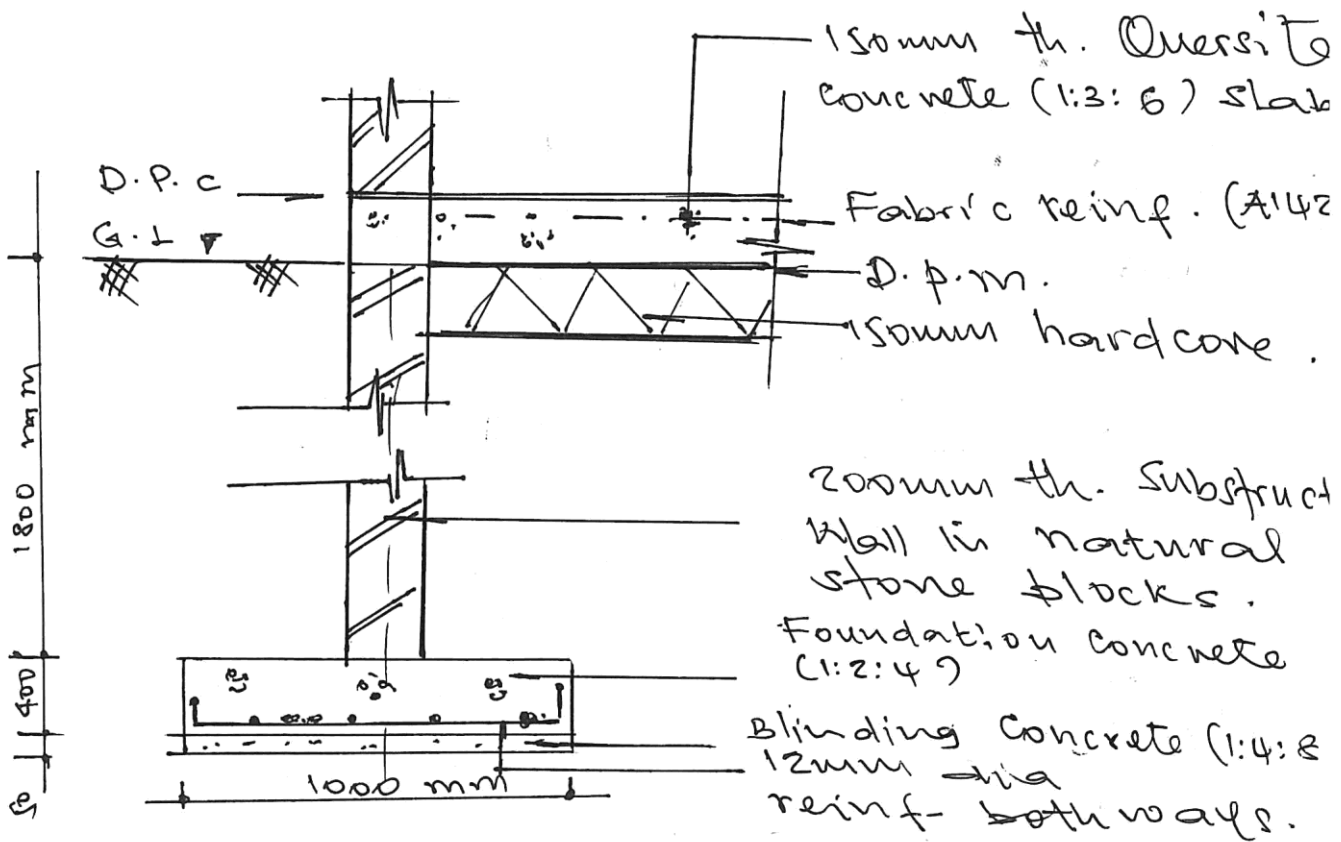 150mm th. Oversite
concrete (1:3:6) slab
D.P.C
Fabric reinf. (A142
G.L
D.p.m.
150mm hardcore.
1800 mm
200mm th. Substruct
Wall in natural
stone blocks.
Foundation concrete
(1:2:4)
400
Blinding Concrete (1:4:8
12mm dia
reinf- both ways.
1000 mm
50